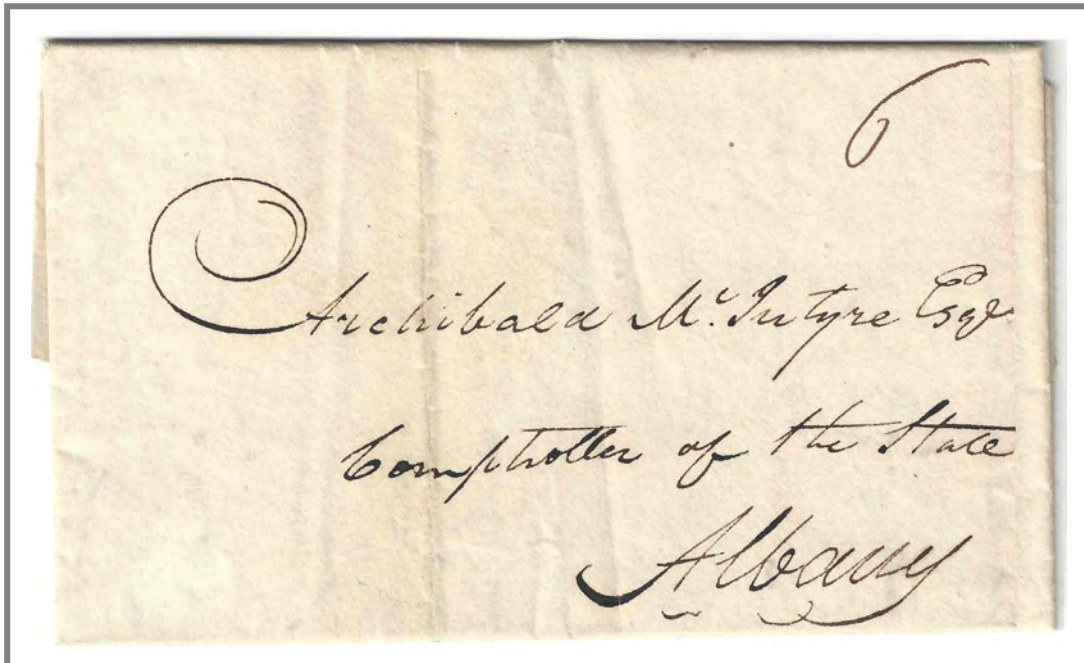 6
Archibald Mc. Intyre Esqr
Comptroller of the State
Albany